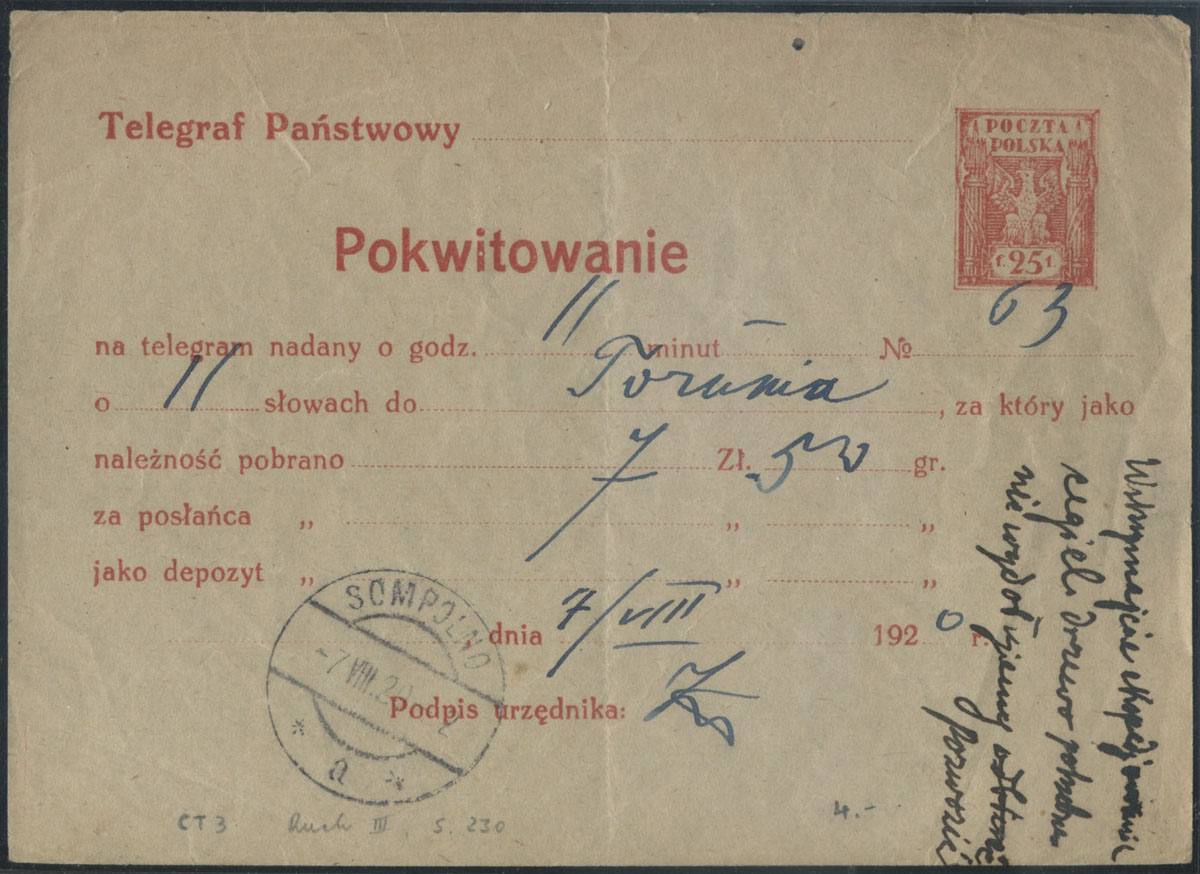 Telegraf Państwowy
POCZTA
POLSKA
f. 25 f.
Pokwitowanie
63
na telegram nadany o godz. 11 minut — №
o 11 słowach do Torunia, za który jako
należność pobrano 7 Zł. 50 gr.
za posłańca „ „ „
jako depozyt „ „ „
SOMPOLNO
-7 VIII.20
a
dnia 7/VIII 1920 r.
Podpis urzędnika:
CT3 Ruch III, S. 230
4.-
Wstrzymajcie
drzewo
nie